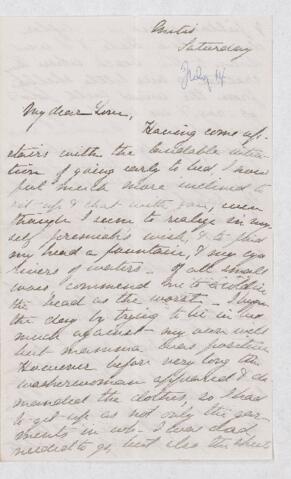 Saturday
July 14
My dear
Having come up-
stairs with the laudable inten-
tion of going early to bed I now
feel much more inclined to
sit up & chat with you, even
though I seem to realize in my-
self Jeremiah's wish, & to find
my head a fountain, & my eyes
rivers of waters. Of all small
woes, commend me to a cold in
the head as the worst. I began
the day by trying to lie in bed
much against my own will
but mamma was positive
However before very long the
washerwoman appeared & de-
manded the clothes, so I had
to get up as not only the gar-
ments in wh. I was clad
needed to go, but also the sheets